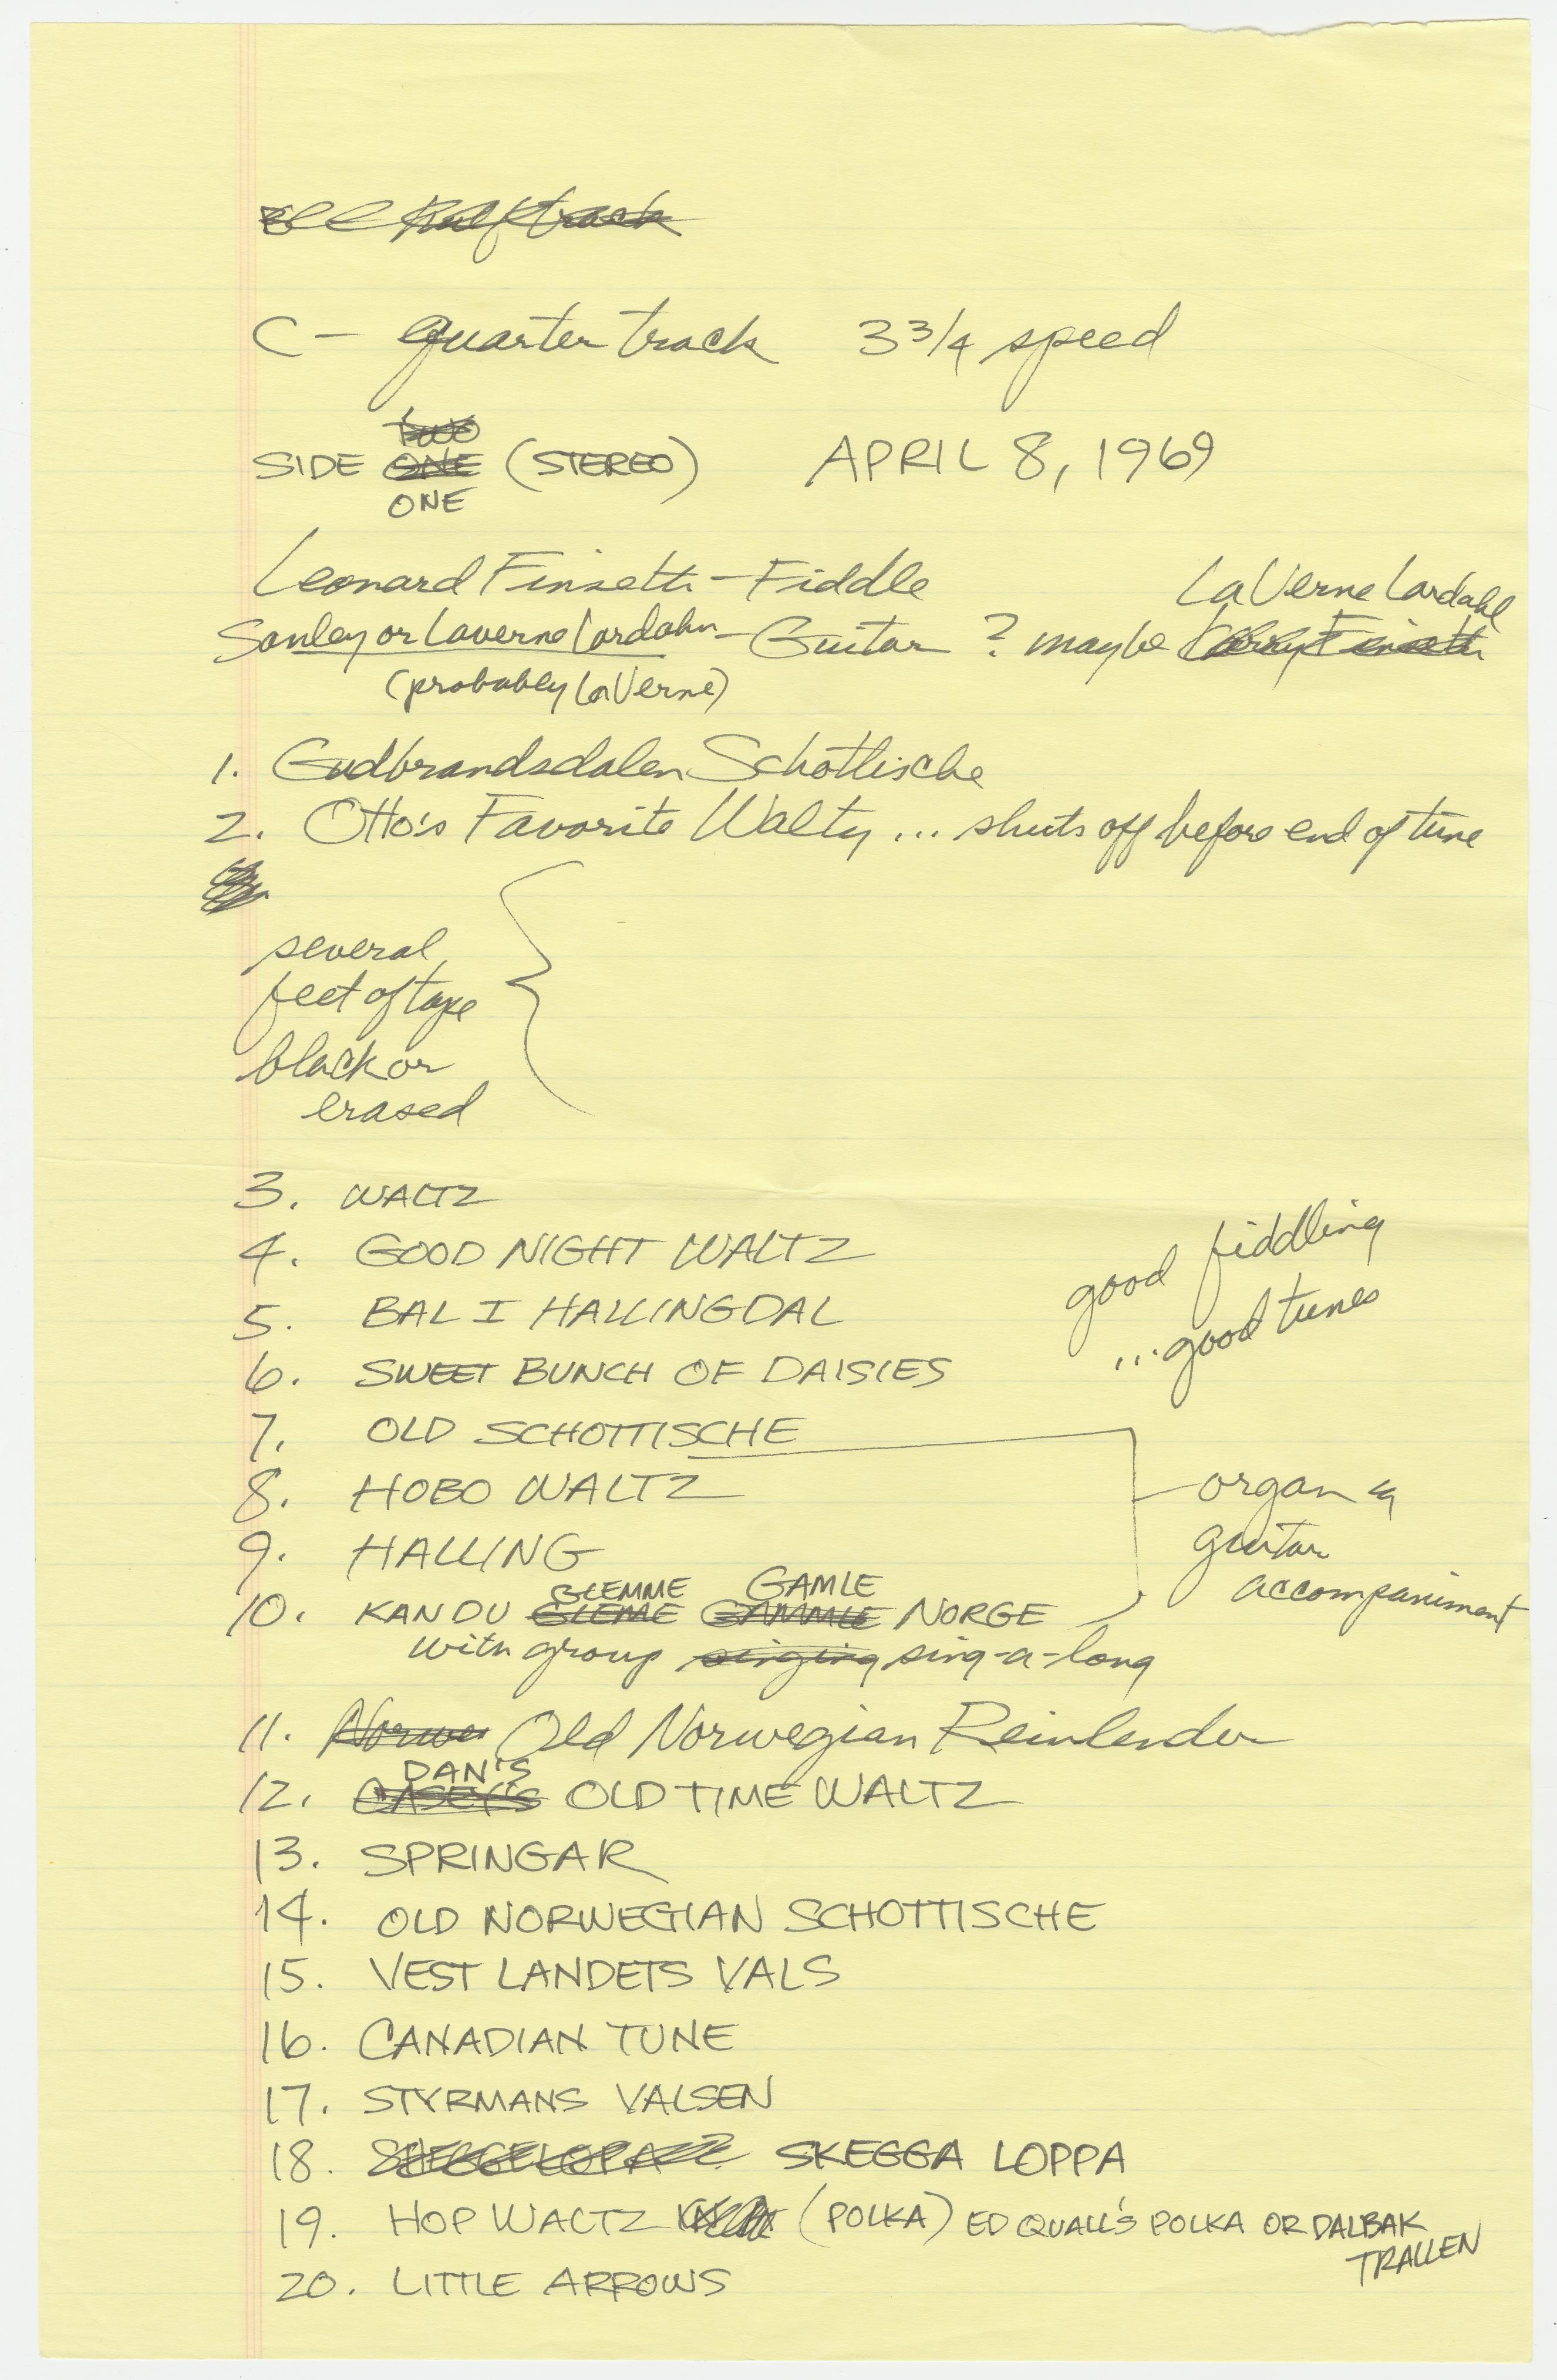 half track
C - quarter track 3 3/4 speed
two
SIDE ONE (STEREO) APRIL 8, 1969
ONE
Leonard Finseth - Fiddle LaVerne Lordahl
Sanley or Laverne Lordahn - Guitar ? maybe Finseth
(probably LaVerne)
1. Gudbrandsdalen Schottische
2. Otto's Favorite Waltz ... shuts off before end of tune
several
feet of tape
black or
erased
3. WALTZ
4. GOOD NIGHT WALTZ
good fiddling
5. BAL I HALLINGDAL
...good tunes
6. SWEET BUNCH OF DAISIES
7. OLD SCHOTTISCHE
8. HOBO WALTZ
organ &
9. HALLING
guitar
GLEMME GAMLE
accompaniment
10. KAN DU GLEME GAMMLE NORGE
with group singing sing-a-long
11. Norwe Old Norwegian Reinlender
DAN'S
12. CASEY'S OLD TIME WALTZ
13. SPRINGAR
14. OLD NORWEGIAN SCHOTTISCHE
15. VEST LANDETS VALS
16. CANADIAN TUNE
17. STYRMANS VALSEN
18. SKEGGA LOPPA
19. HOP WALTZ (POLKA) ED QUALL'S POLKA OR DALBAK
TRALLEN
20. LITTLE ARROWS